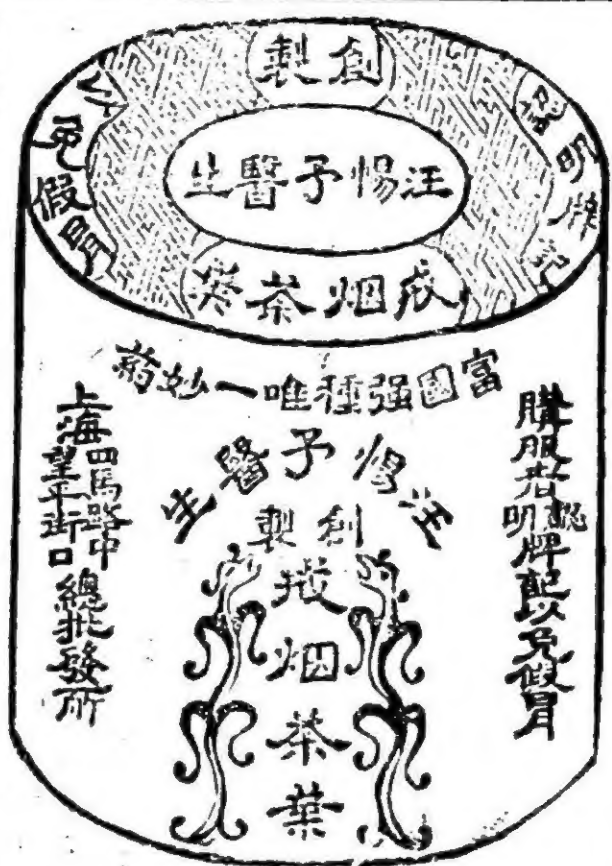 創製
汪惕予醫生
戒烟茶葉
認明牌記
以免假冒
富國强種唯一妙葯
汪惕予醫生
創製
戒烟茶葉
購服者認明牌記以免假冒
上海四馬路中望平街口總批發所